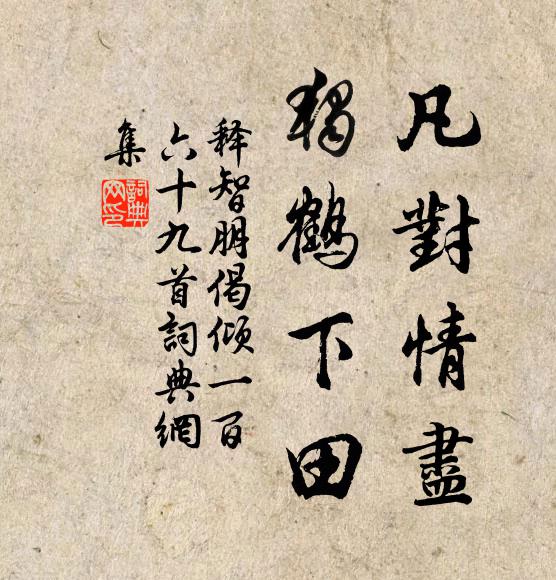 凡對情盡
獨鶴下田
释智朋偈倾一百
六十九首詞典網
集
詞典
网印